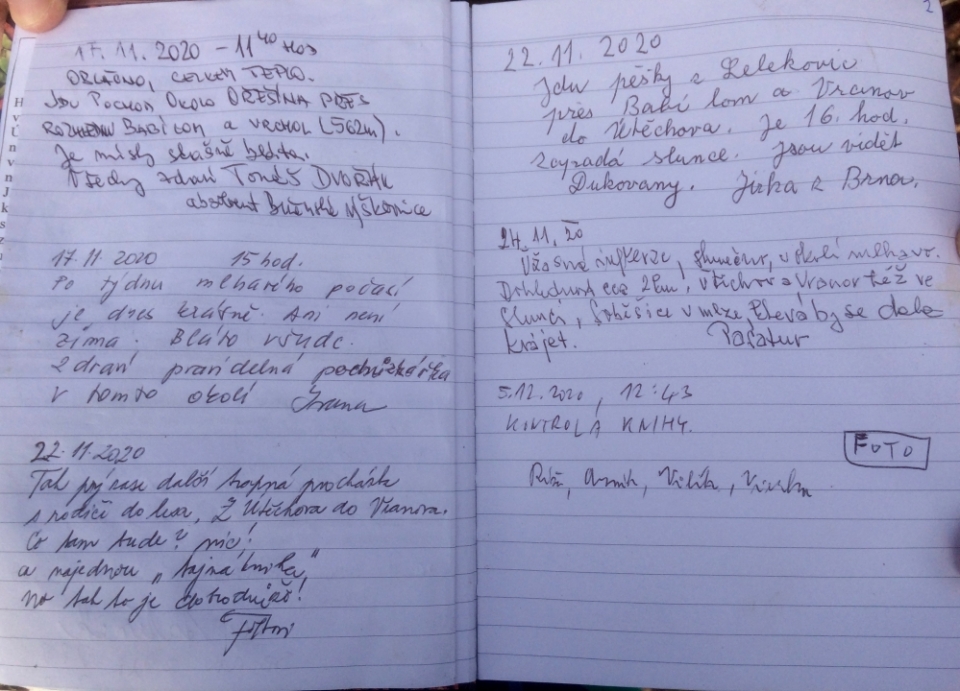 17.11.2020 - 11 40 HOD
OBLAČNO, CELKEM TEPLO.
JDU POCHOD OKOLO OŘEŠÍNA PŘES
BABÍ LOM A VRCHOL (562m).
Je místy slušné bláto.
Všechny zdraví Tomáš DVOŘÁK
17.11.2020 15 hod.
Po týdnu mlhavého počasí
je dnes krásně. Ani není
zima. Bláto všude.
Zdraví pravidelná pochůzkářka
v tomto okolí Ivana
22.11.2020
Tak prý zase další trapná procházka
s rodiči do lesa, Z Útěchova do Vranova.
Co tam bude? nic!
a najednou „tajná kniha"
No tak to je dobrodrůžo!
2
22.11.2020
Jdu pěšky z Lelekovic
přes Babí lom a Vranov
do Útěchova. Je 16. hod.
Zapadá slunce. Jsou vidět
Dukovany. Jirka z Brna.
24.11.20
Úžasná inverze, slunečno, v okolí mlhavo.
Dohlednost cca 2km, Útěchov a Vranov též ve
slunci, Soběšice v mlze, která by se dala
krájet.
5.12.2020, 12:43
KONTROLA KNIHY.
FOTO